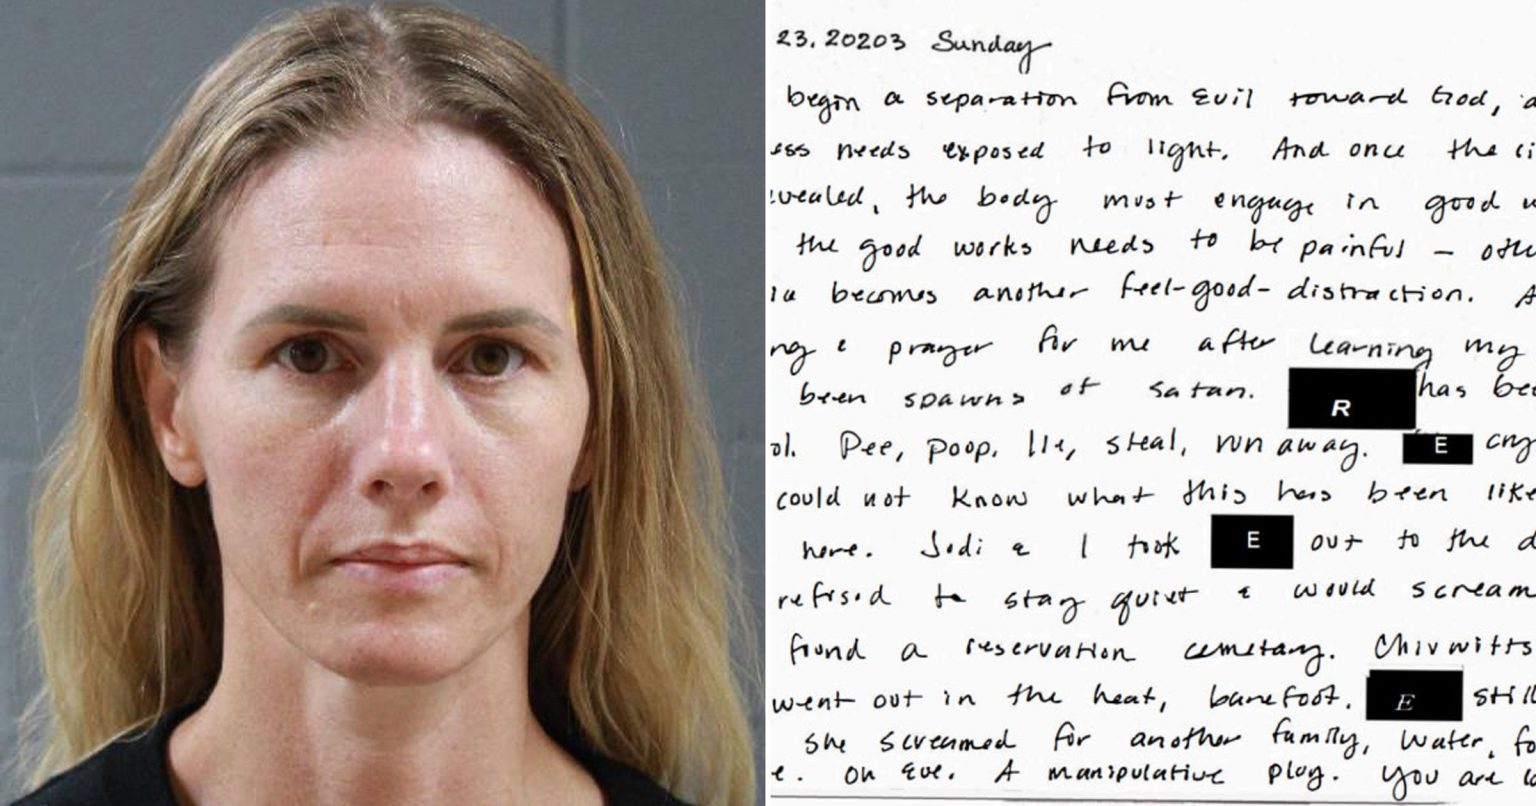 23, 20203 Sunday
begin a separation from Evil toward God, a
ess needs exposed to light. And once the ci
evealed, the body must engage in good w
the good works needs to be painful – othe
ia becomes another feel-good-distraction. A
ng & prayer for me after learning my
been spawns of satan. R has bee
ol. Pee, poop, lie, steal, run away. E cry
could not know what this has been like
here. Jodi & I took E out to the d
refused to stay quiet & would scream
found a reservation cemetary. Chivwitts
went out in the heat, barefoot. E still
she screamed for another family, water, fo
e. On Eve. A manipulative ploy. You are